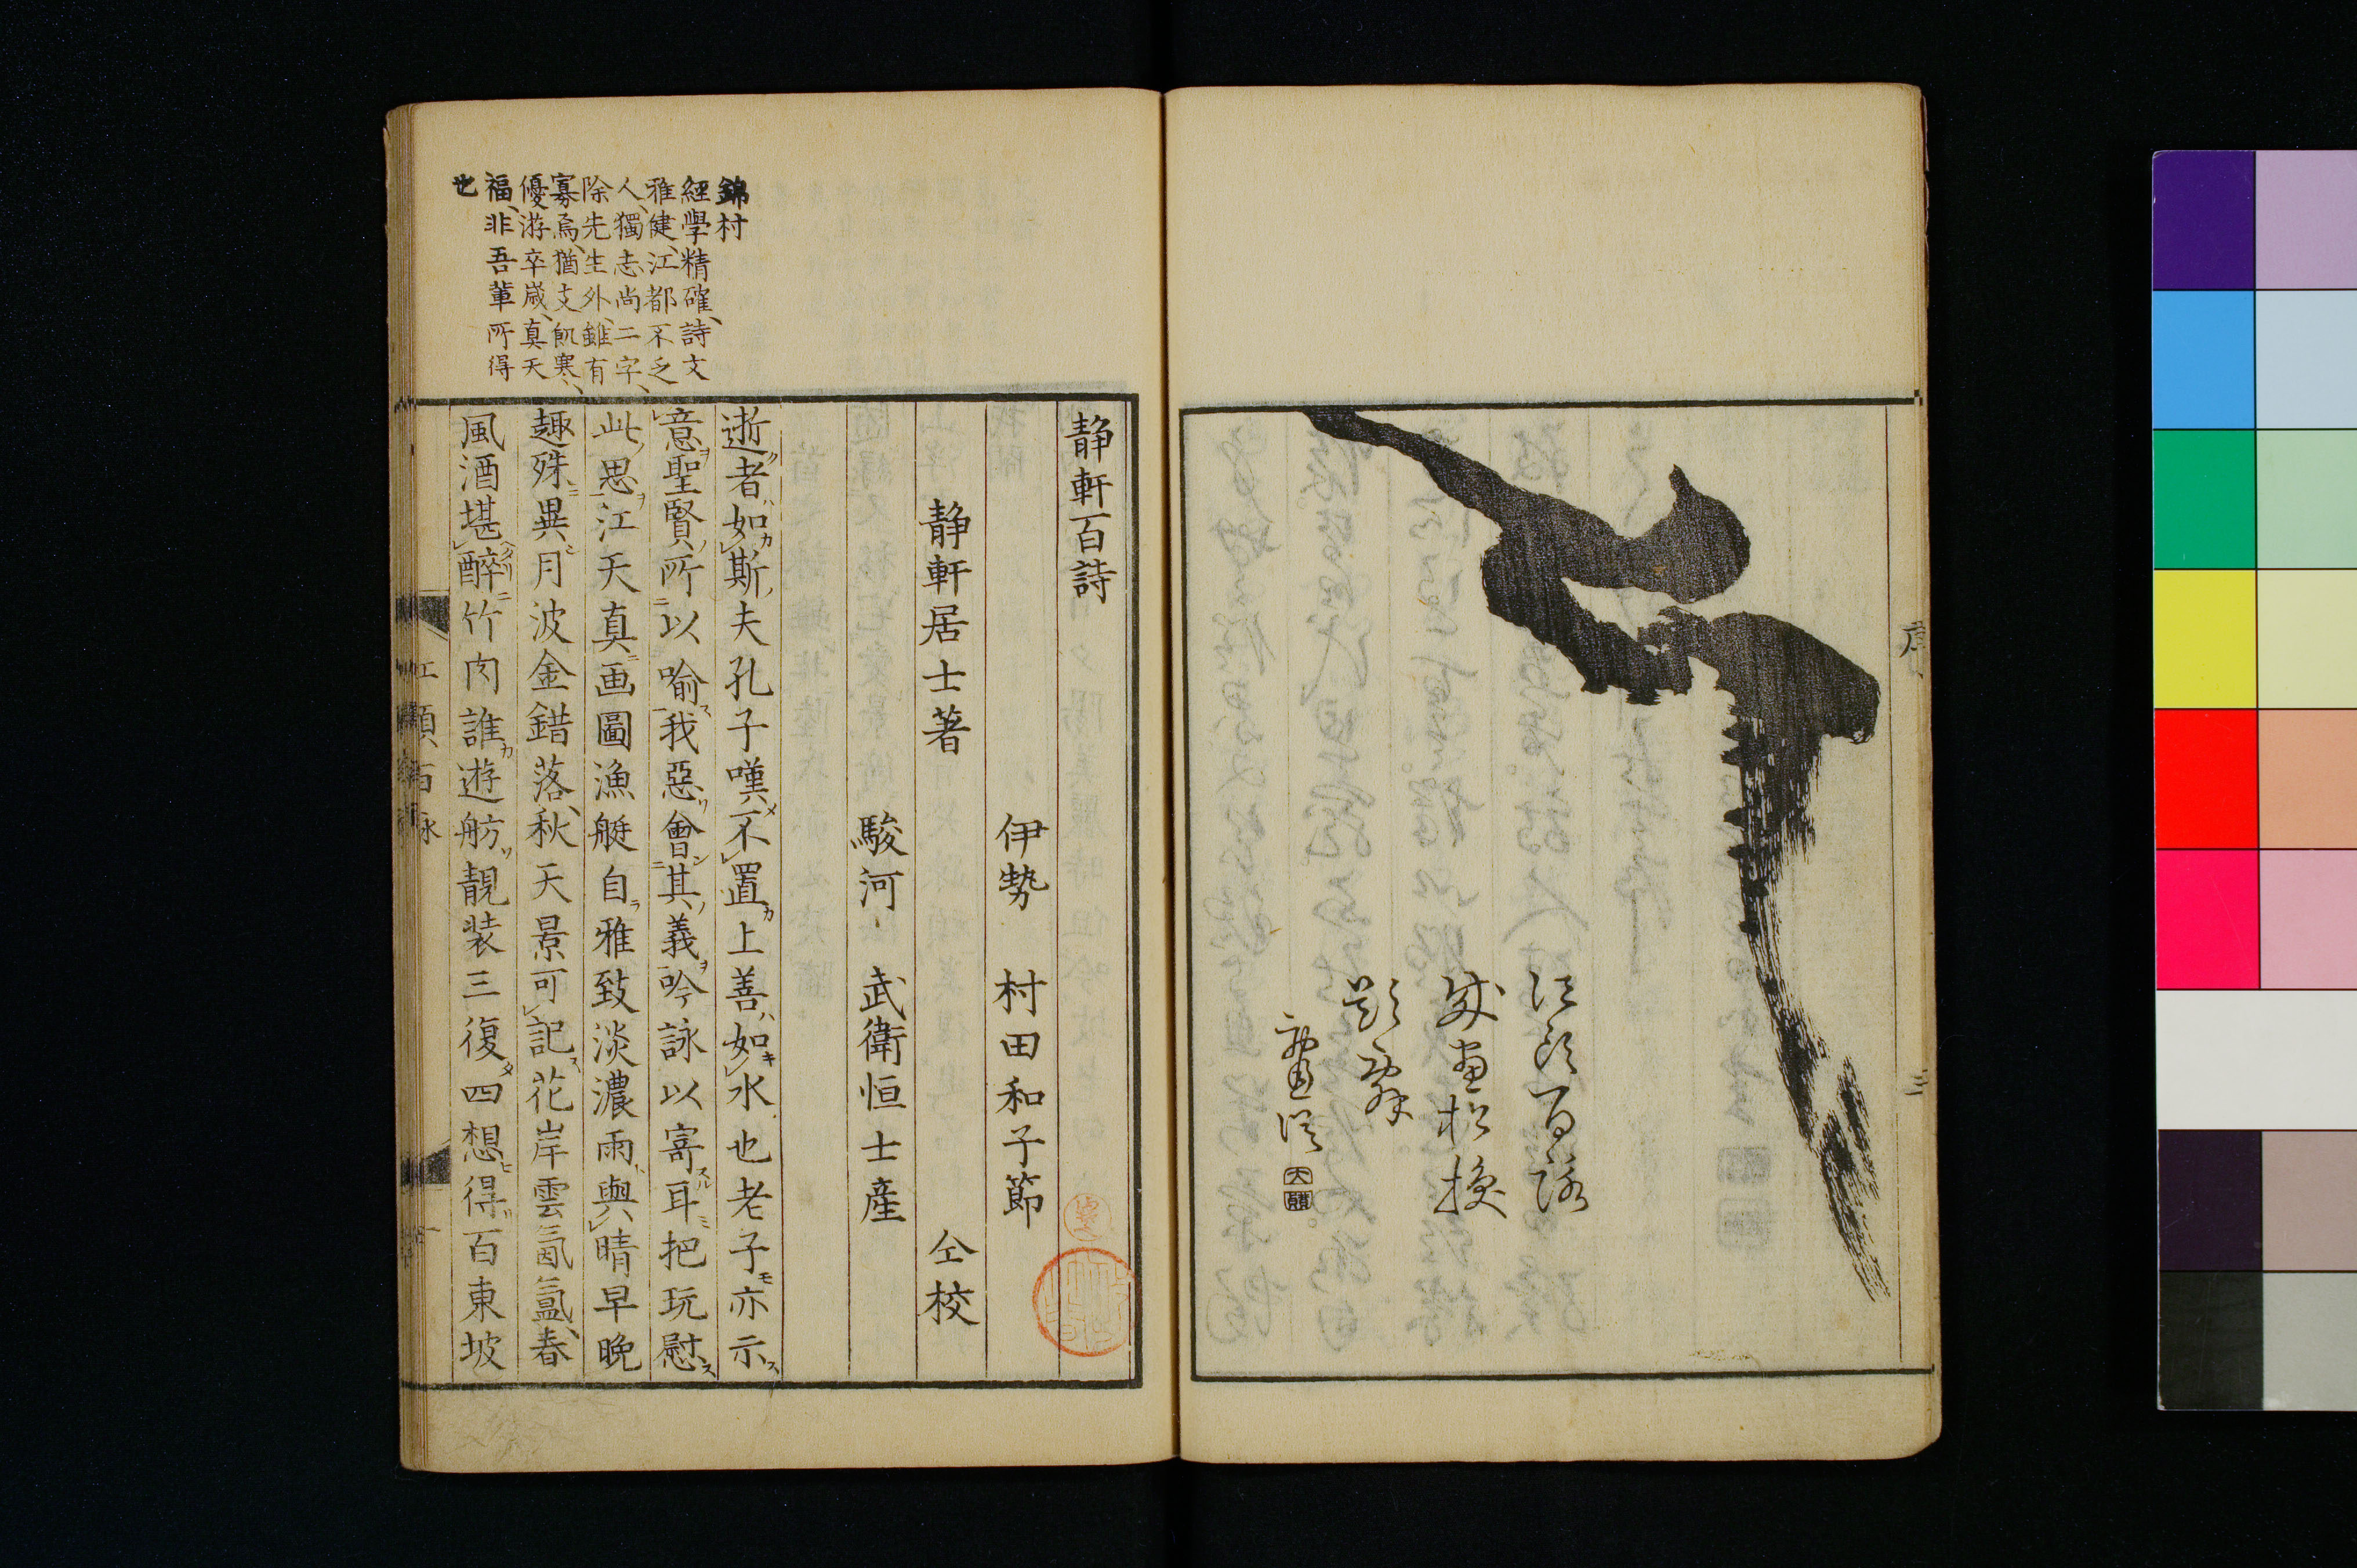 序
三
江頭百詠
題辞
静軒百詩
伊勢 村田和子節
静軒居士著 仝校
駿河 武衛恒士産
逝者如斯夫孔子嘆不置上善如水也老子亦示
意聖賢所以喻我惡會其義吟詠以寄耳把玩慰
此思江天真画圖漁艇自雅致淡濃雨與晴早晩
趣殊異月波金錯落秋天景可記花岸雲氤氳春
風酒堪醉竹肉誰遊舫靚装三復四想得百東坡
錦村
經學精確、詩文
雅健、江都不乏
人、獨志尚二字、
除先生外、雖有
寡焉、猶支飢寒、
優游卒歳、真天
福、非吾軰所得
也
江頭百詠
一